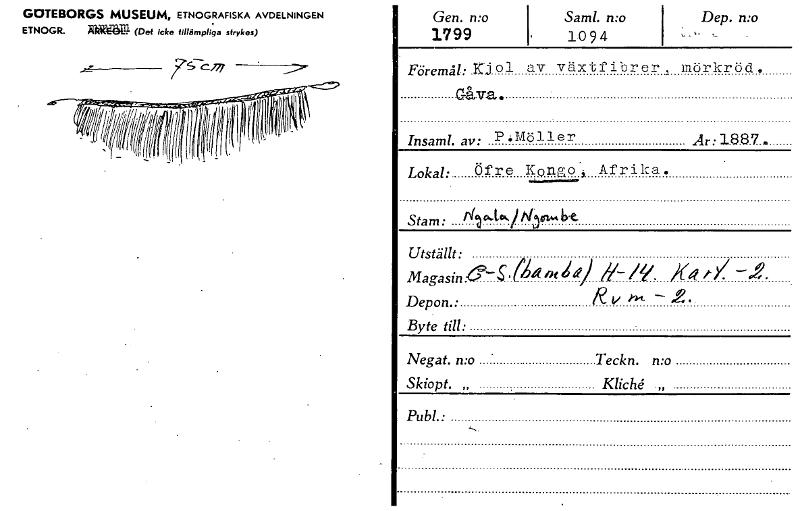 GÖTEBORGS MUSEUM, ETNOGRAFISKA AVDELNINGEN
ETNOGR. ARKEOL. (Det icke tillämpliga strykes)
75cm
Gen. n:o Saml. n:o Dep. n:o
1799 1094
Föremål: Kjol av växtfibrer, mörkröd.
Gåva.
Insaml. av: P.Möller År: 1887.
Lokal: Öfre Kongo, Afrika.
Stam: Ngala/Ngombe
Utställt:
Magasin: C-S.(bamba) H-14. Kart. -2.
Depon.: Rvm - 2.
Byte till:
Negat. n:o Teckn. n:o
Skiopt. „ Kliché „
Publ.: